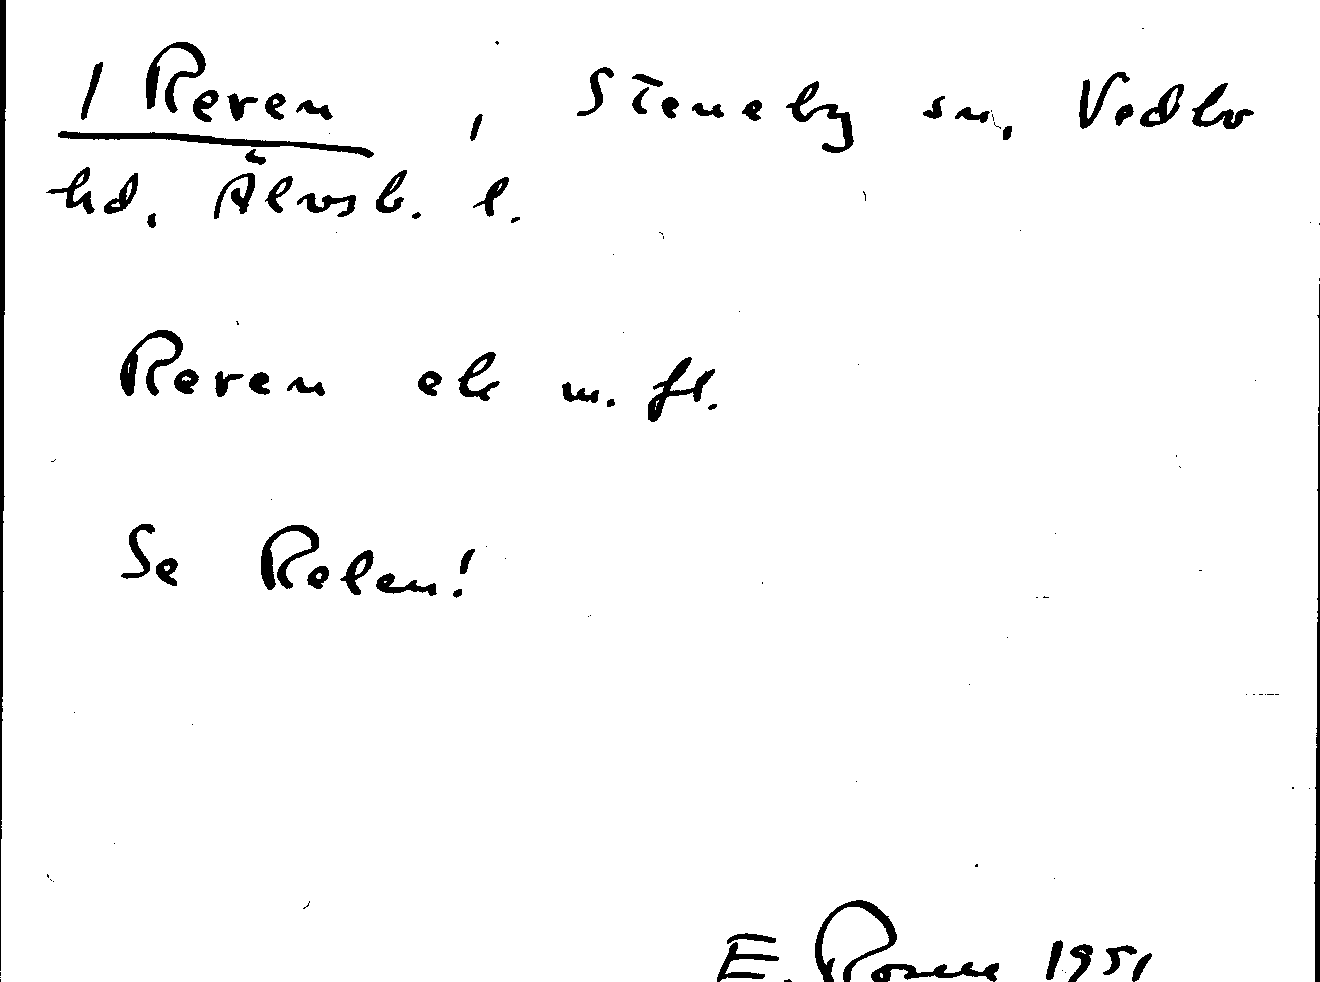 1 Reven, Steneby sn, Vedbo
hd. Älvsb. l.
Reven ek m. fl.
Se Relen!
E. Rosell 1951